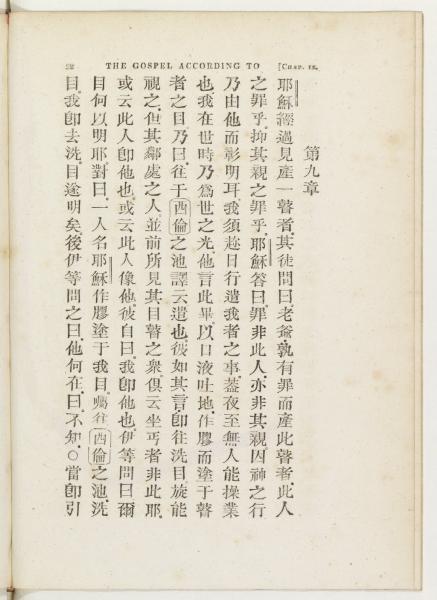 22 THE GOSPEL ACCORDING TO [CHAP. IX.
第九章
耶穌經過見產一瞽者其徒問曰老爺孰有罪而產此瞽者此人
之罪乎抑其親之罪乎耶穌答曰罪非此人亦非其親因神之行
乃由他而彰明耳我須趁日行遣我者之事蓋夜至無人能操業
也我在世時乃為世之光他言此畢以口液吐地作膠而塗于瞽
者之目乃曰往于西倫之池譯云遣也彼如其言即往洗目旋能
視之但其鄰處之人並前所見其目瞽之衆俱云坐丐者非此耶
或云此人即他也或云此人像他彼自曰我即他也伊等問曰爾
目何以明耶對曰一人名耶穌作膠塗于我目囑往西倫之池洗
目我即去洗目遂明矣後伊等問之曰他何在曰不知○當即引